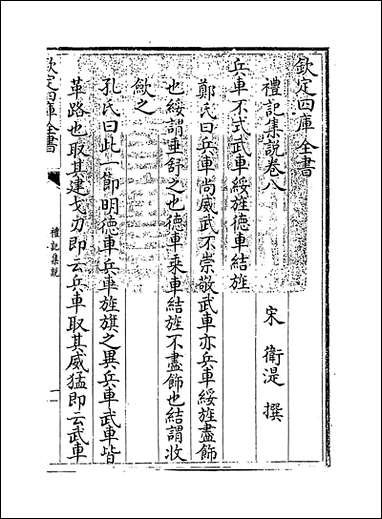 欽定四庫全書
禮記集說卷八
宋 衛湜 撰
兵車不式武車綏旌德車結旌
鄭氏曰兵車尚威武不崇敬武車亦兵車綏旌盡飾
也綏謂垂舒之也德車乘車結旌不盡飾也結謂收
斂之
孔氏曰此一節明德車兵車旌旗之異兵車武車皆
革路也取其建戈刃即云兵車取其威猛即云武車
欽定四庫全書
禮記集說
一